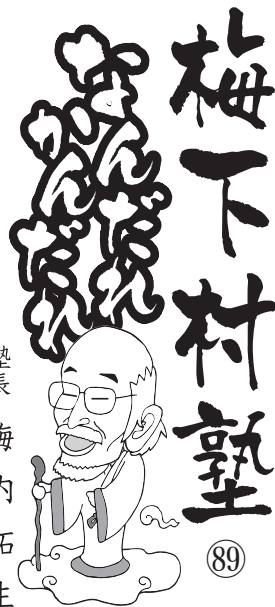 梅下村塾
なんだれ
かんだれ
塾長 梅内拓生
89